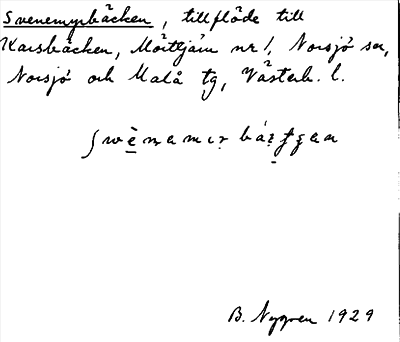 Svenemyrbäcken, tillflöde till
Karsbäcken, Möittjärn nr 1, Norsjö sn,
Norsjö och Malå tg, Västerb. l.
B. Nygren 1929